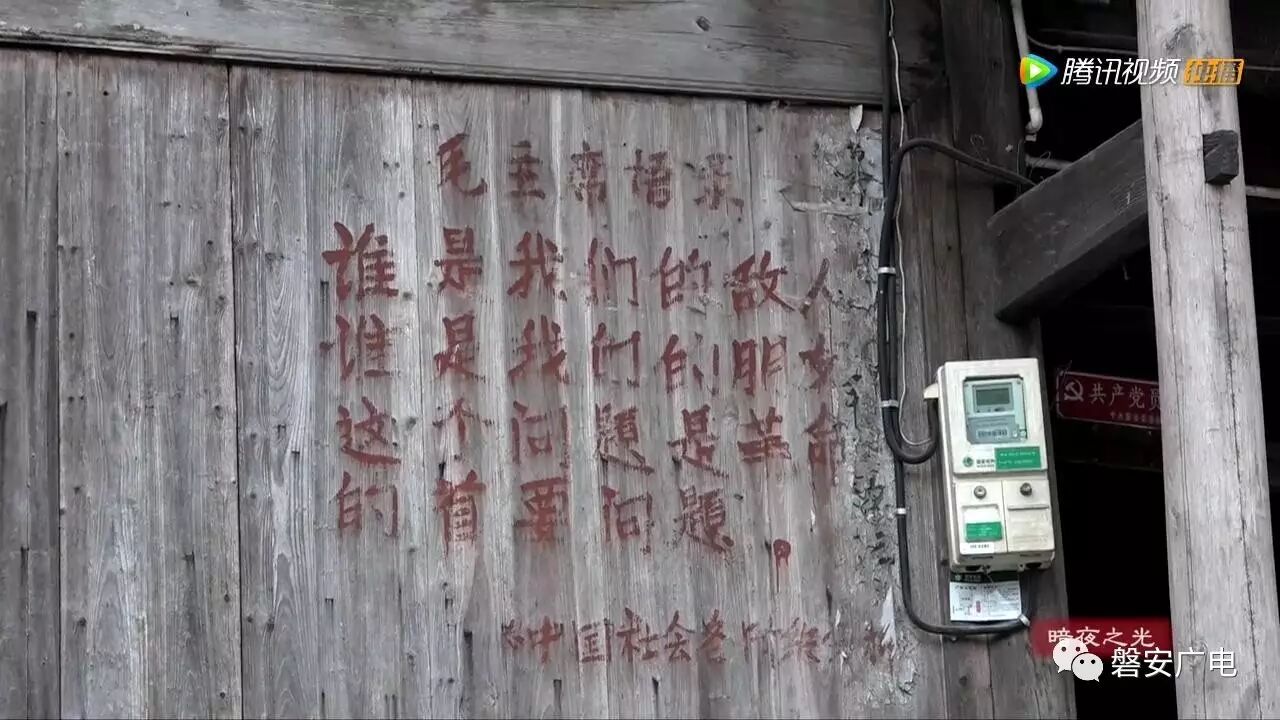 毛主席语录
谁是我们的敌人
谁是我们的朋友
这个问題是革命
的首要问題。
中国社会各
腾讯视频 独播
共产党员
暗夜之光
磐安广电